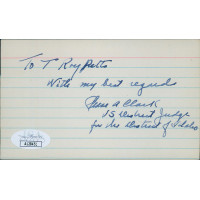 To T Roy Petts
With my best regards
Chase A Clark
US District Judge
for the District of Idaho